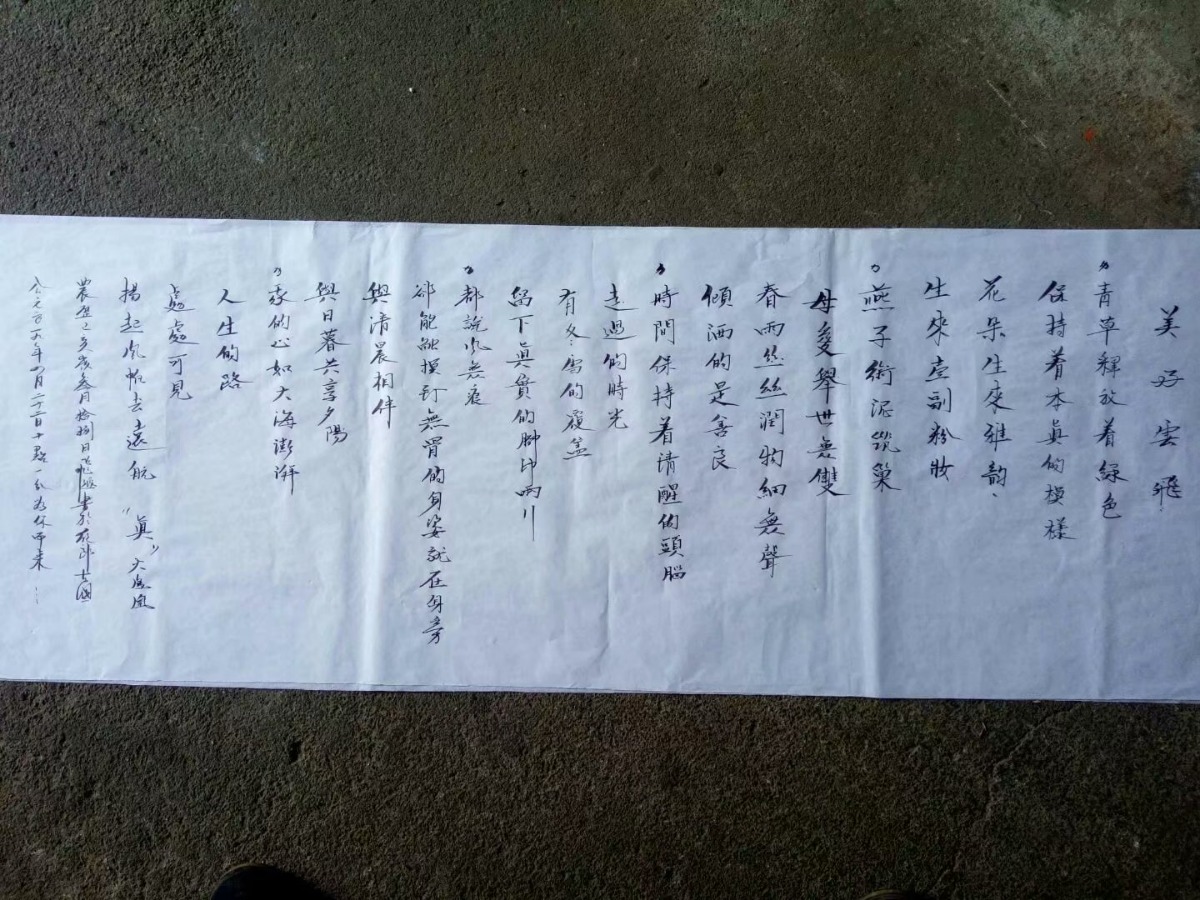 美好雲飛
青草釋放着綠色
保持着本真的模樣
花朵生來雅韵、
生來壹副粉妝
燕子銜泥築巢
母愛舉世無雙
春雨丝丝潤物細無聲
傾洒的是善良
時間保持着清醒的頭腦
走過的時光
有冬雪的覆盖
留下真實的脚印兩行
都說风無痕
卻能触摸到無骨的身姿就在身旁
與清晨相伴
與日暮共享夕陽
我的心如大海澎湃
人生的路
處處可見
揚起风帆去遠航 "真"大应风
農歷之亥度叁月拾捌日
年四月二十二日十點一分